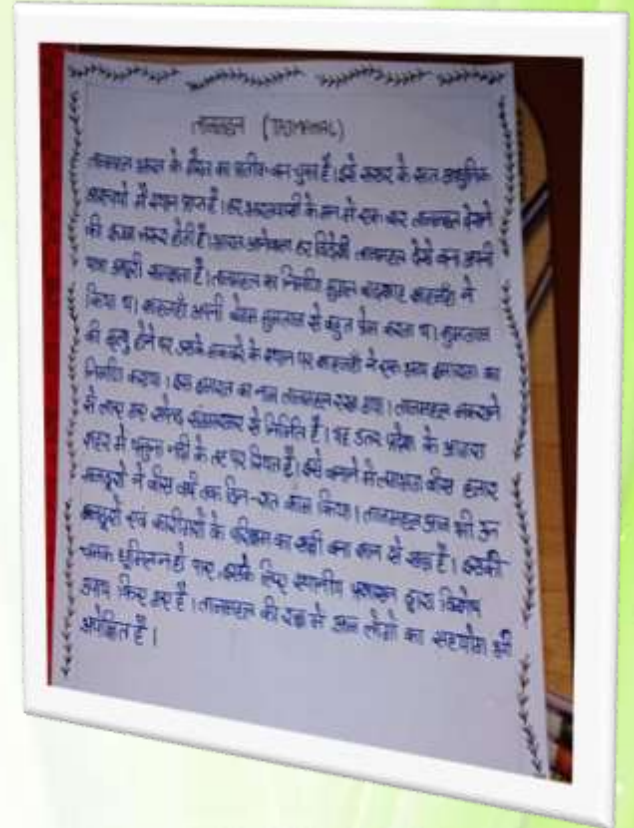 ताजमहल (TAJMAHAL)
ताजमहल भारत के का प्रतीक बन चुका है। इसे संसार के सात आधुनिक
आश्चर्यों में स्थान प्राप्त है। हर भारतवासी के मन में एक बार ताजमहल देखने
की इच्छा जरूर होती है। भारत आनेवाला हर विदेशी ताजमहल देखे बिना अपनी
यात्रा अधूरी समझता है। ताजमहल का निर्माण मुग़ल बादशाह शाहजहाँ ने
किया था। शाहजहाँ अपनी बेगम मुमताज से बहुत प्रेम करता था। मुमताज
की मृत्यु होने पर उसके मकबरे के स्थान पर शाहजहाँ ने एक भव्य इमारत का
निर्माण कराया। इस इमारत का नाम ताजमहल रखा गया। ताजमहल मकराने
से लाए गए सफेद संगमरमर से निर्मित है। यह उत्तर प्रदेश के आगरा
शहर में यमुना नदी के तट पर स्थित है। इसे बनाने में लगभग बीस हजार
मजदूरों ने बीस वर्ष तक दिन-रात काम किया। ताजमहल आज भी उन
मजदूरों एवं कारीगरों के परिश्रम का साक्षी बना शान से खड़ा है। इसकी
चमक धूमिल न हो पाए, इसके लिए स्थानीय प्रशासन द्वारा विशेष
उपाय किए गए हैं। ताजमहल की रक्षा में आम लोगों का सहयोग भी
अपेक्षित है।